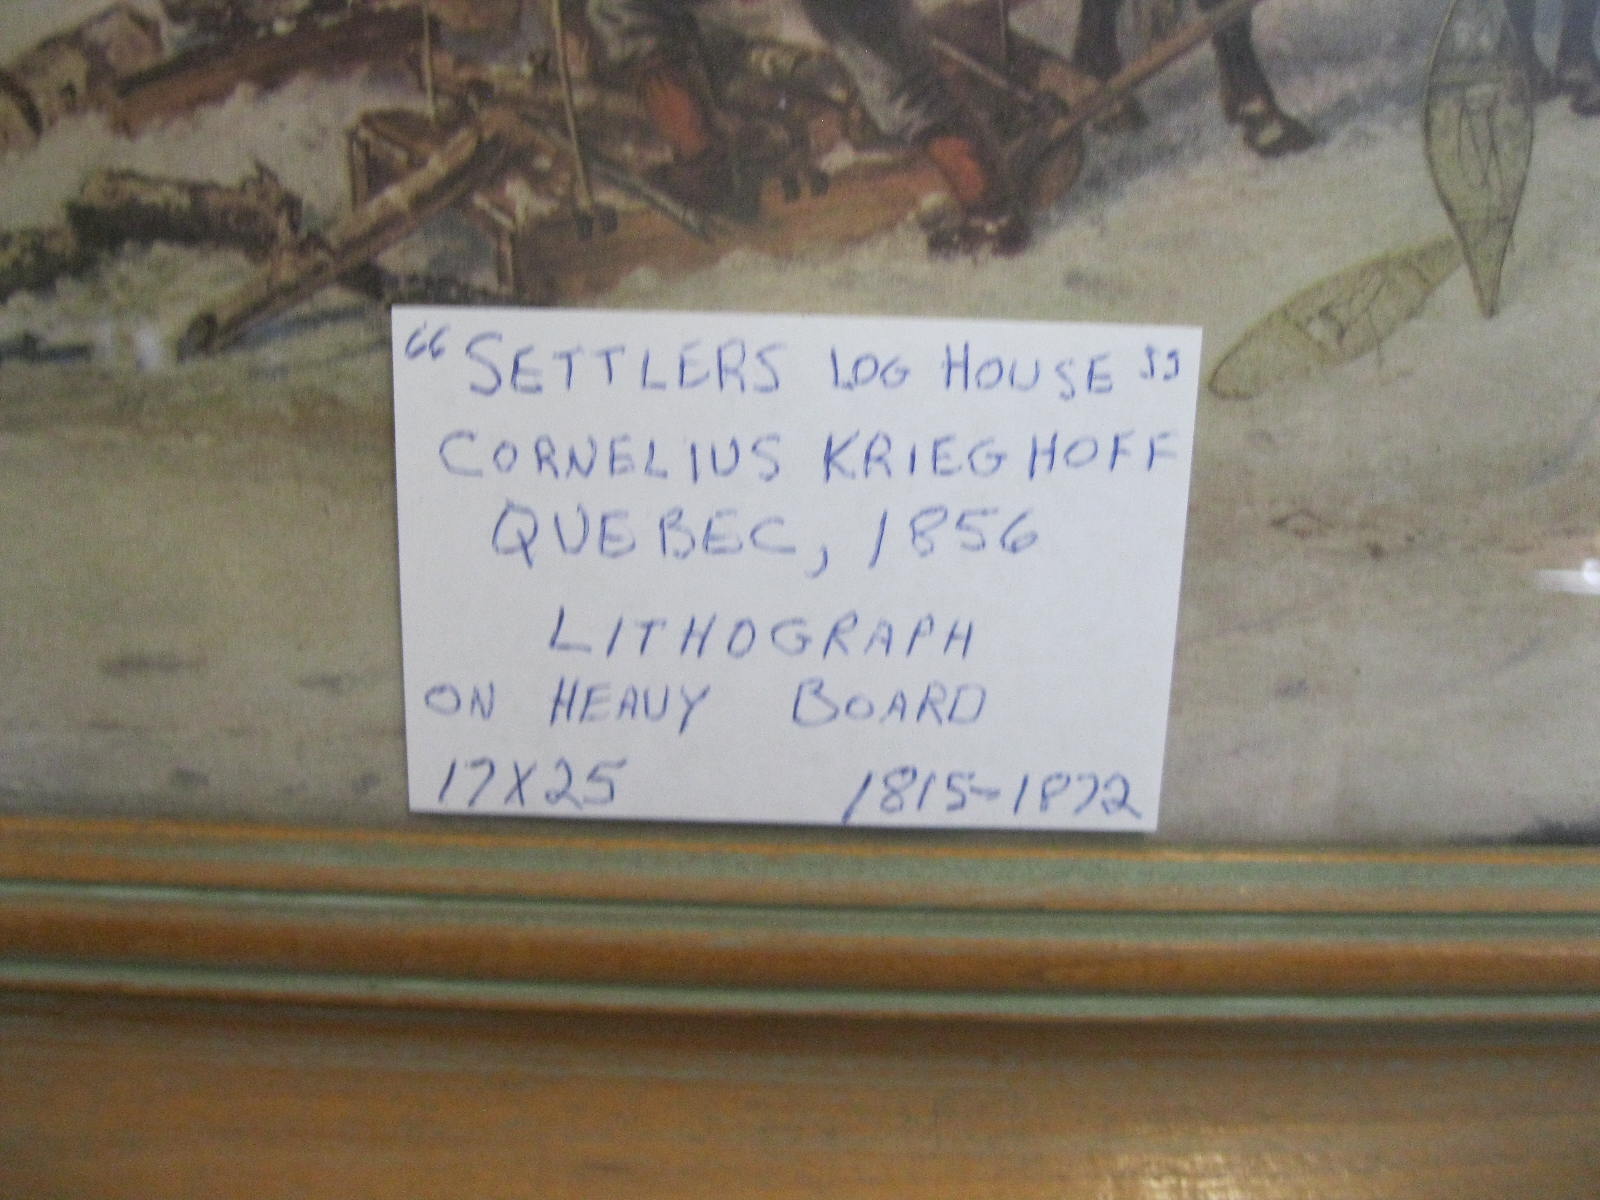 "SETTLERS LOG HOUSE"
CORNELIUS KRIEGHOFF
QUEBEC, 1856
LITHOGRAPH
ON HEAVY BOARD
17X25 1815-1872